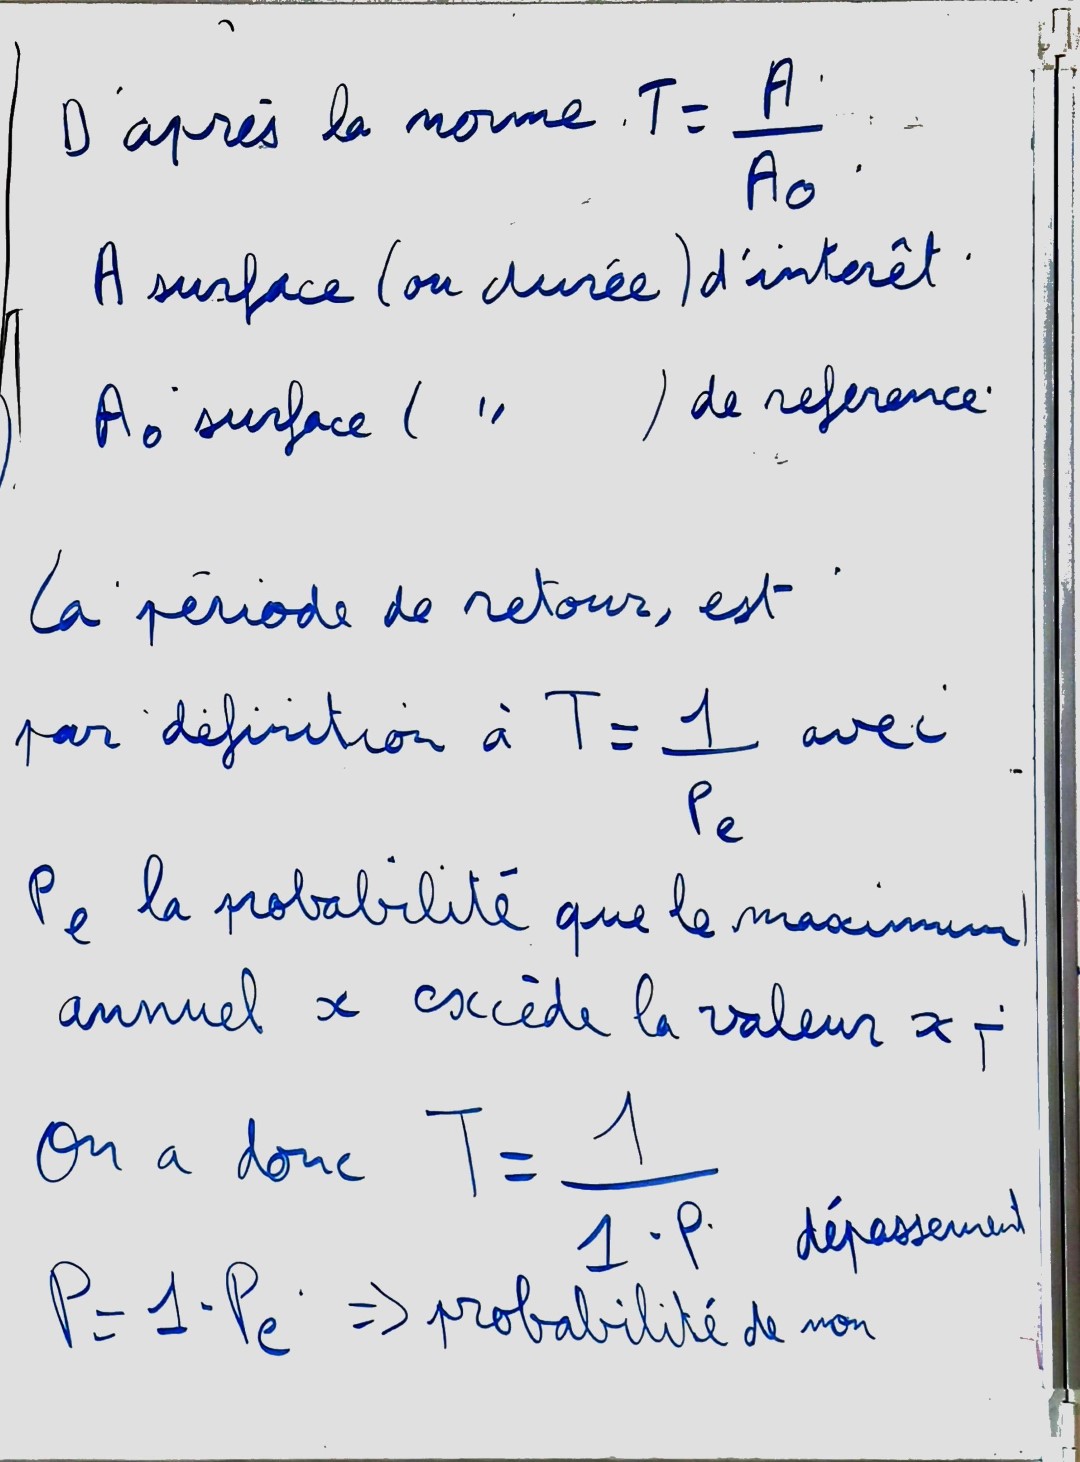 D'après la norme T = A / A0
A surface (ou durée) d'interêt
A0 surface ( " ) de reference
La période de retour, est
par définition à T = 1 / Pe avec
Pe la probabilité que le maximum
annuel x excède la valeur xT
On a donc T = 1 / 1-P
dépassement
P = 1-Pe => probabilité de non